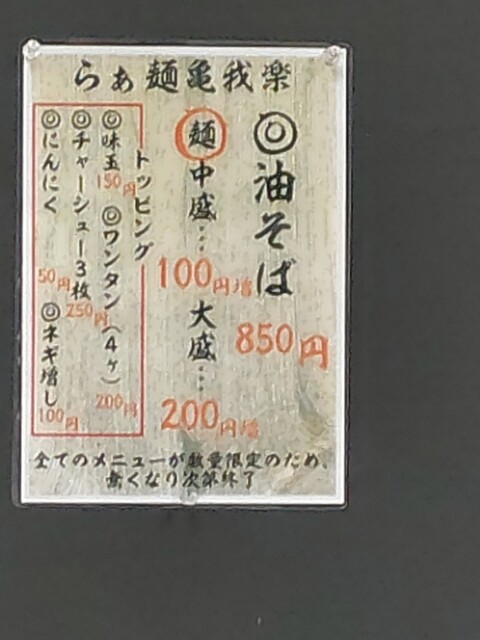 らぁ麺亀我楽
◎油そば
850円
麺中盛… 100円増
大盛… 200円増
トッピング
◎味玉 150円
◎ワンタン(4ヶ) 200円
◎チャーシュー3枚 250円
◎にんにく 50円
◎ネギ増し 100円
全てのメニューが数量限定のため、
無くなり次第終了